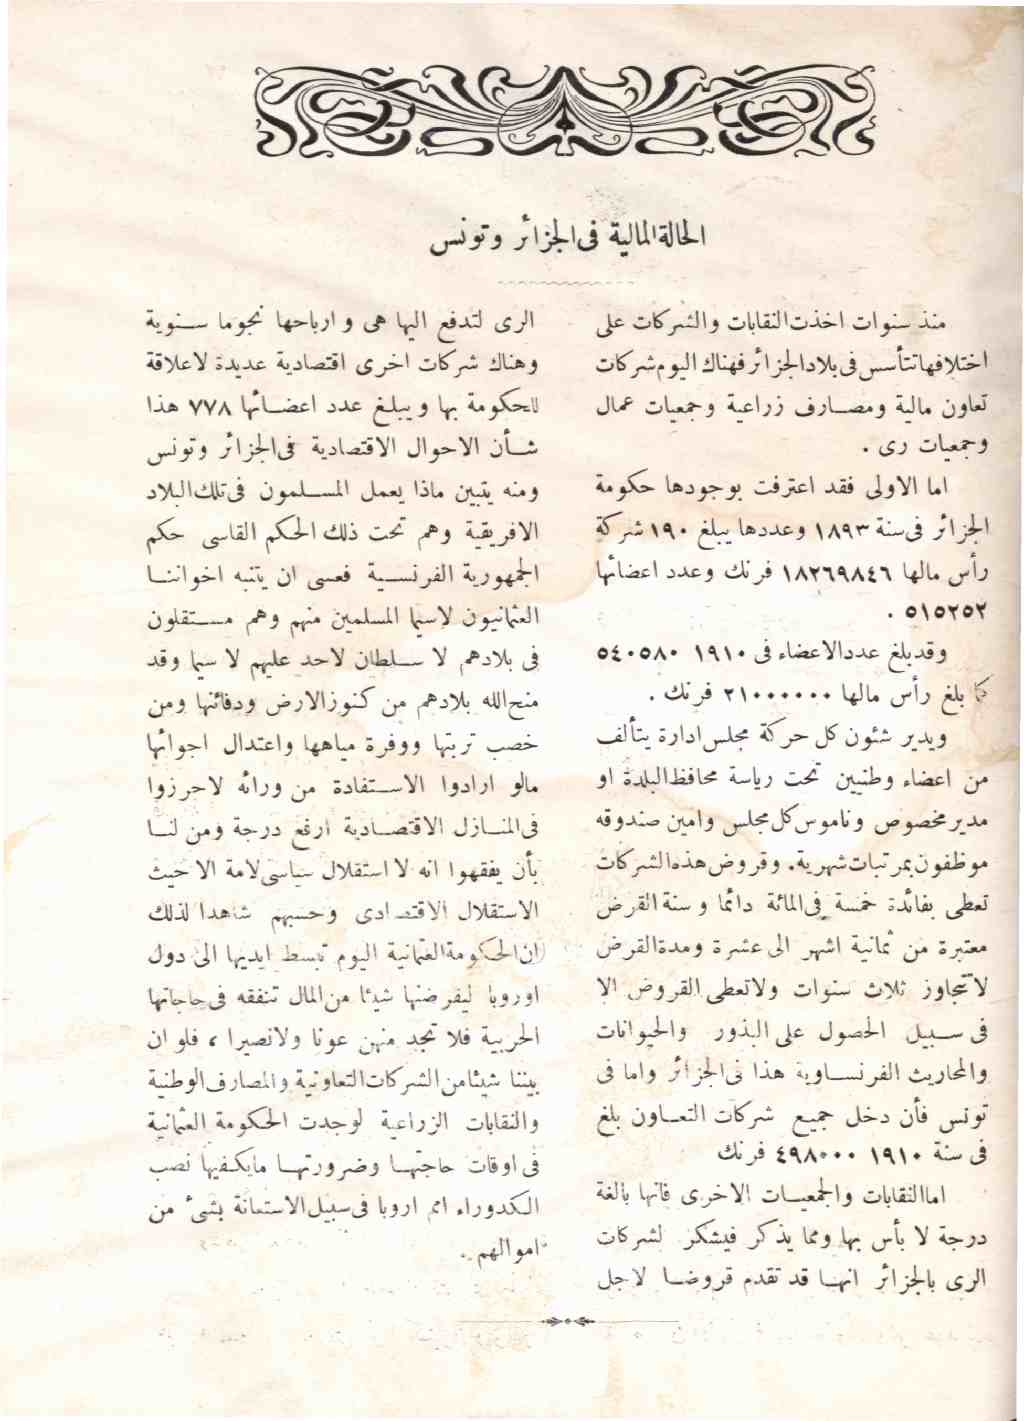 الحالة المالية فى الجزائر وتونس
منذ سنوات اخذت النقابات والشركات على
اختلافها تتأسس فى بلاد الجزائر فهناك اليوم شركات
تعاون مالية ومصارف زراعية وجمعيات عمال
وجمعيات رى .
اما الاولى فقد اعترفت بوجودها حكومة
الجزائر فى سنة ١٨٩٣ وعددها يبلغ ١٩٠ شركة
رأس مالها ١٨٢٦٩٨٤٦ فرنك وعدد اعضائها
٥١٥٢٥٢ .
وقد بلغ عدد الاعضاء فى ١٩١٠ ٥٤٠٥٨٠
كما بلغ رأس مالها ٢١٠٠٠٠٠٠ فرنك .
ويدير شئون كل حركة مجلس ادارة يتألف
من اعضاء وطنيين تحت رياسة محافظ البلدة او
مدير مخصوص وناموس كل مجلس وامين صندوقه
موظفون بمرتبات شهرية. وقروض هذه الشركات
تعطى بفائدة خمسة فى المائة دائما وسنة القرض
معتبرة من ثمانية اشهر الى عشرة ومدة القرض
لا تتجاوز ثلاث سنوات ولا تعطى القروض الا
فى سبيل الحصول على البذور والحيوانات
والمحاريث الفرنساوية هذا فى الجزائر واما فى
تونس فأن دخل جميع شركات التعاون بلغ
فى سنة ١٩١٠ ٤٩٨٠٠٠ فرنك
اما النقابات والجمعيات الاخرى فانها بالغة
درجة لا بأس بها ومما يذكر فيشكر لشركات
الرى بالجزائر انها قد تقدم قروضا لاجل
الرى لتدفع اليها هى وارباحها نجوما سنوية
وهناك شركات اخرى اقتصادية عديدة لاعلاقة
للحكومة بها ويبلغ عدد اعضائها ٧٧٨ هذا
شأن الاحوال الاقتصادية فى الجزائر وتونس
ومنه يتبين ماذا يعمل المسلمون فى تلك البلاد
الافريقية وهم تحت ذلك الحكم القاسى حكم
الجمهورية الفرنسية فعسى ان يتنبه اخواننا
العثمانيون لاسيما المسلمين منهم وهم مستقلون
فى بلادهم لا سلطان لاحد عليهم لا سيما وقد
منح الله بلادهم من كنوز الارض ودفائنها ومن
خصب تربتها ووفرة مياهها واعتدال اجوائها
مالو ارادوا الاستفادة من ورائه لاحرزوا
فى المنازل الاقتصادية ارفع درجة ومن لنا
بأن يفقهوا انه لا استقلال سياسى لامة الا حيث
الاستقلال الاقتصادى وحسبهم شاهدا لذلك
ان الحكومة العثمانية اليوم تبسط ايديها الى دول
اوروبا ليقرضنها شيئا من المال تنفقه فى حاجاتها
الحربية فلا تجد منهن عونا ولا نصيرا ، فلو ان
بيننا شيئا من الشركات التعاونية والمصارف الوطنية
والنقابات الزراعية لوجدت الحكومة العثمانية
فى اوقات حاجتها وضرورتها ما يكفيها نصب
الكدوراء امم اروبا فى سبيل الاستعانة بشئ من
اموالهم .